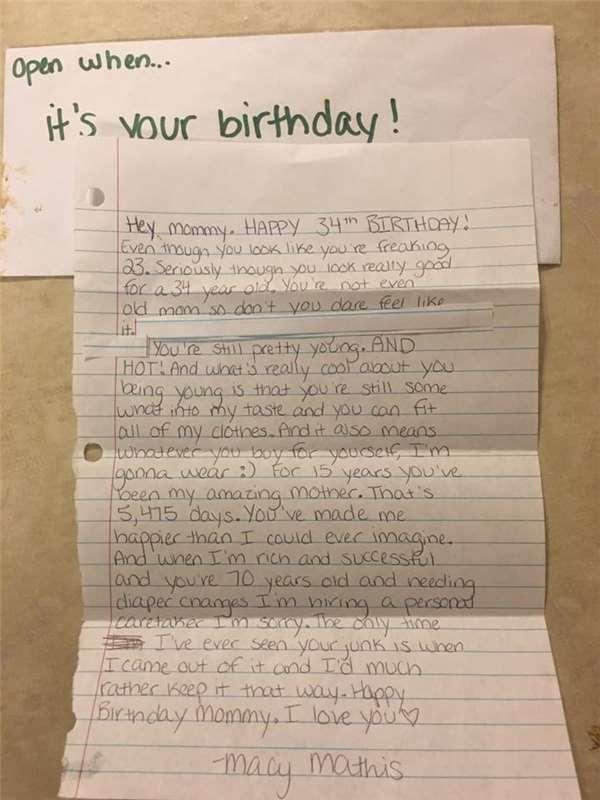 Open when...
it's your birthday!
Hey, mommy. HAPPY 34th BIRTHDAY!
Even though you look like you're freaking
23. Seriously though you look really good
for a 34 year old. You're not even
old mom so don't you dare feel like
it.
You're still pretty young. AND
HOT! And what's really cool about you
being young is that you're still some
what into my taste and you can fit
all of my clothes. And it also means
whatever you buy for yourself, I'm
gonna wear :) For 15 years you've
been my amazing mother. That's
5,475 days. You've made me
happier than I could ever imagine.
And when I'm rich and successful
and you're 70 years old and needing
diaper changes I'm hiring a personal
caretaker I'm sorry. The only time
I've ever seen your junk is when
I came out of it and I'd much
rather keep it that way. Happy
Birthday Mommy. I love you♡
-Macy Mathis